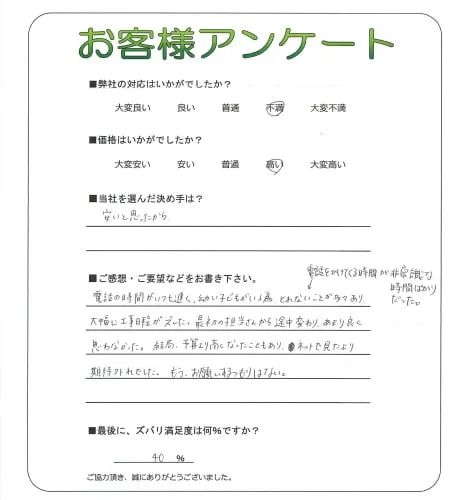 お客様アンケート
■弊社の対応はいかがでしたか？
大変良い 良い 普通 不満 大変不満
■価格はいかがでしたか？
大変安い 安い 普通 高い 大変高い
■当社を選んだ決め手は？
安いと思ったから
■ご感想・ご要望などをお書き下さい。
電話をかけてくる時間が非常識な
時間ばかり
だった。
電話の時間がいつも遅く、幼い子どもがいる為、とれないことが多々あり
大幅に工事日程がズレた。最初の担当さんから途中変わり、あまり良く
思わなかった。結局、予算より高くなったこともあり、ネットで見たより
期待外れでした。もう、お願いするつもりはない。
■最後に、ズバリ満足度は何%ですか？
40 %
ご協力頂き、誠にありがとうございました。